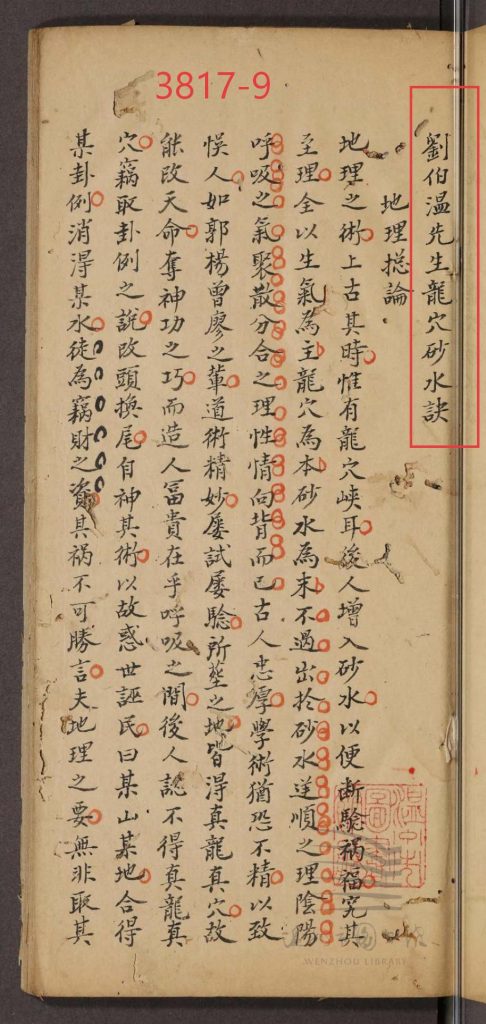 3817-9
劉伯溫先生龍穴砂水訣
地理摠論
地理之術上古其時惟有龍穴峽耳後人增入砂水以便斷驗禍福究其
至理全以生氣為主龍穴為本砂水為末不過出於砂水逆順之理陰陽
呼吸之氣聚散分合之理性情向背而已古人忠厚學術猶恐不精以致
悞人如郭楊曾廖之輩道術精妙屡試屡驗所塟之地皆得真龍真穴故
能改天命奪神功之巧而造人富貴在乎呼吸之間後人認不得真龍真
穴竊取卦例之說改頭換尾自神其術以故惑世誣民曰某山某地合得
某卦例消得某水徒為竊財之資其禍不可勝言夫地理之要無非取其
WENZHOU LIBRARY